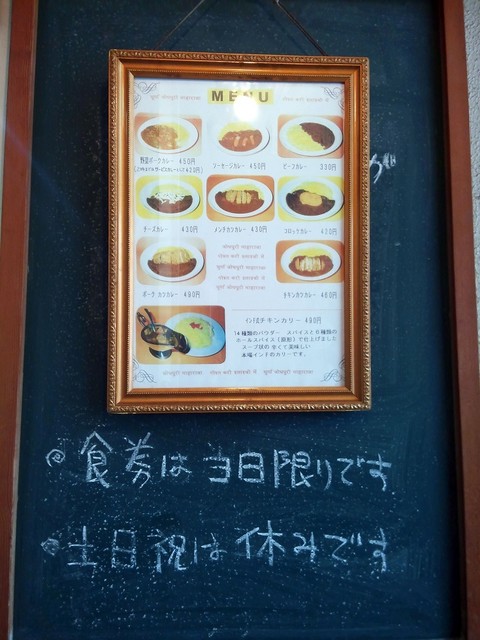 MENU
野菜ポークカレー 450円
ソーセージカレー 450円
ビーフカレー 330円
チーズカレー 430円
メンチカツカレー 430円
コロッケカレー 420円
ポークカツカレー 490円
チキンカツカレー 460円
インド式チキンカリー 490円
14種類のパウダー スパイスと5種類の
ホールスパイス(原形)で仕上げました
スープ状の 辛くて美味しい
本場インドのカリーです。
食券は当日限りです
土日祝は休みです